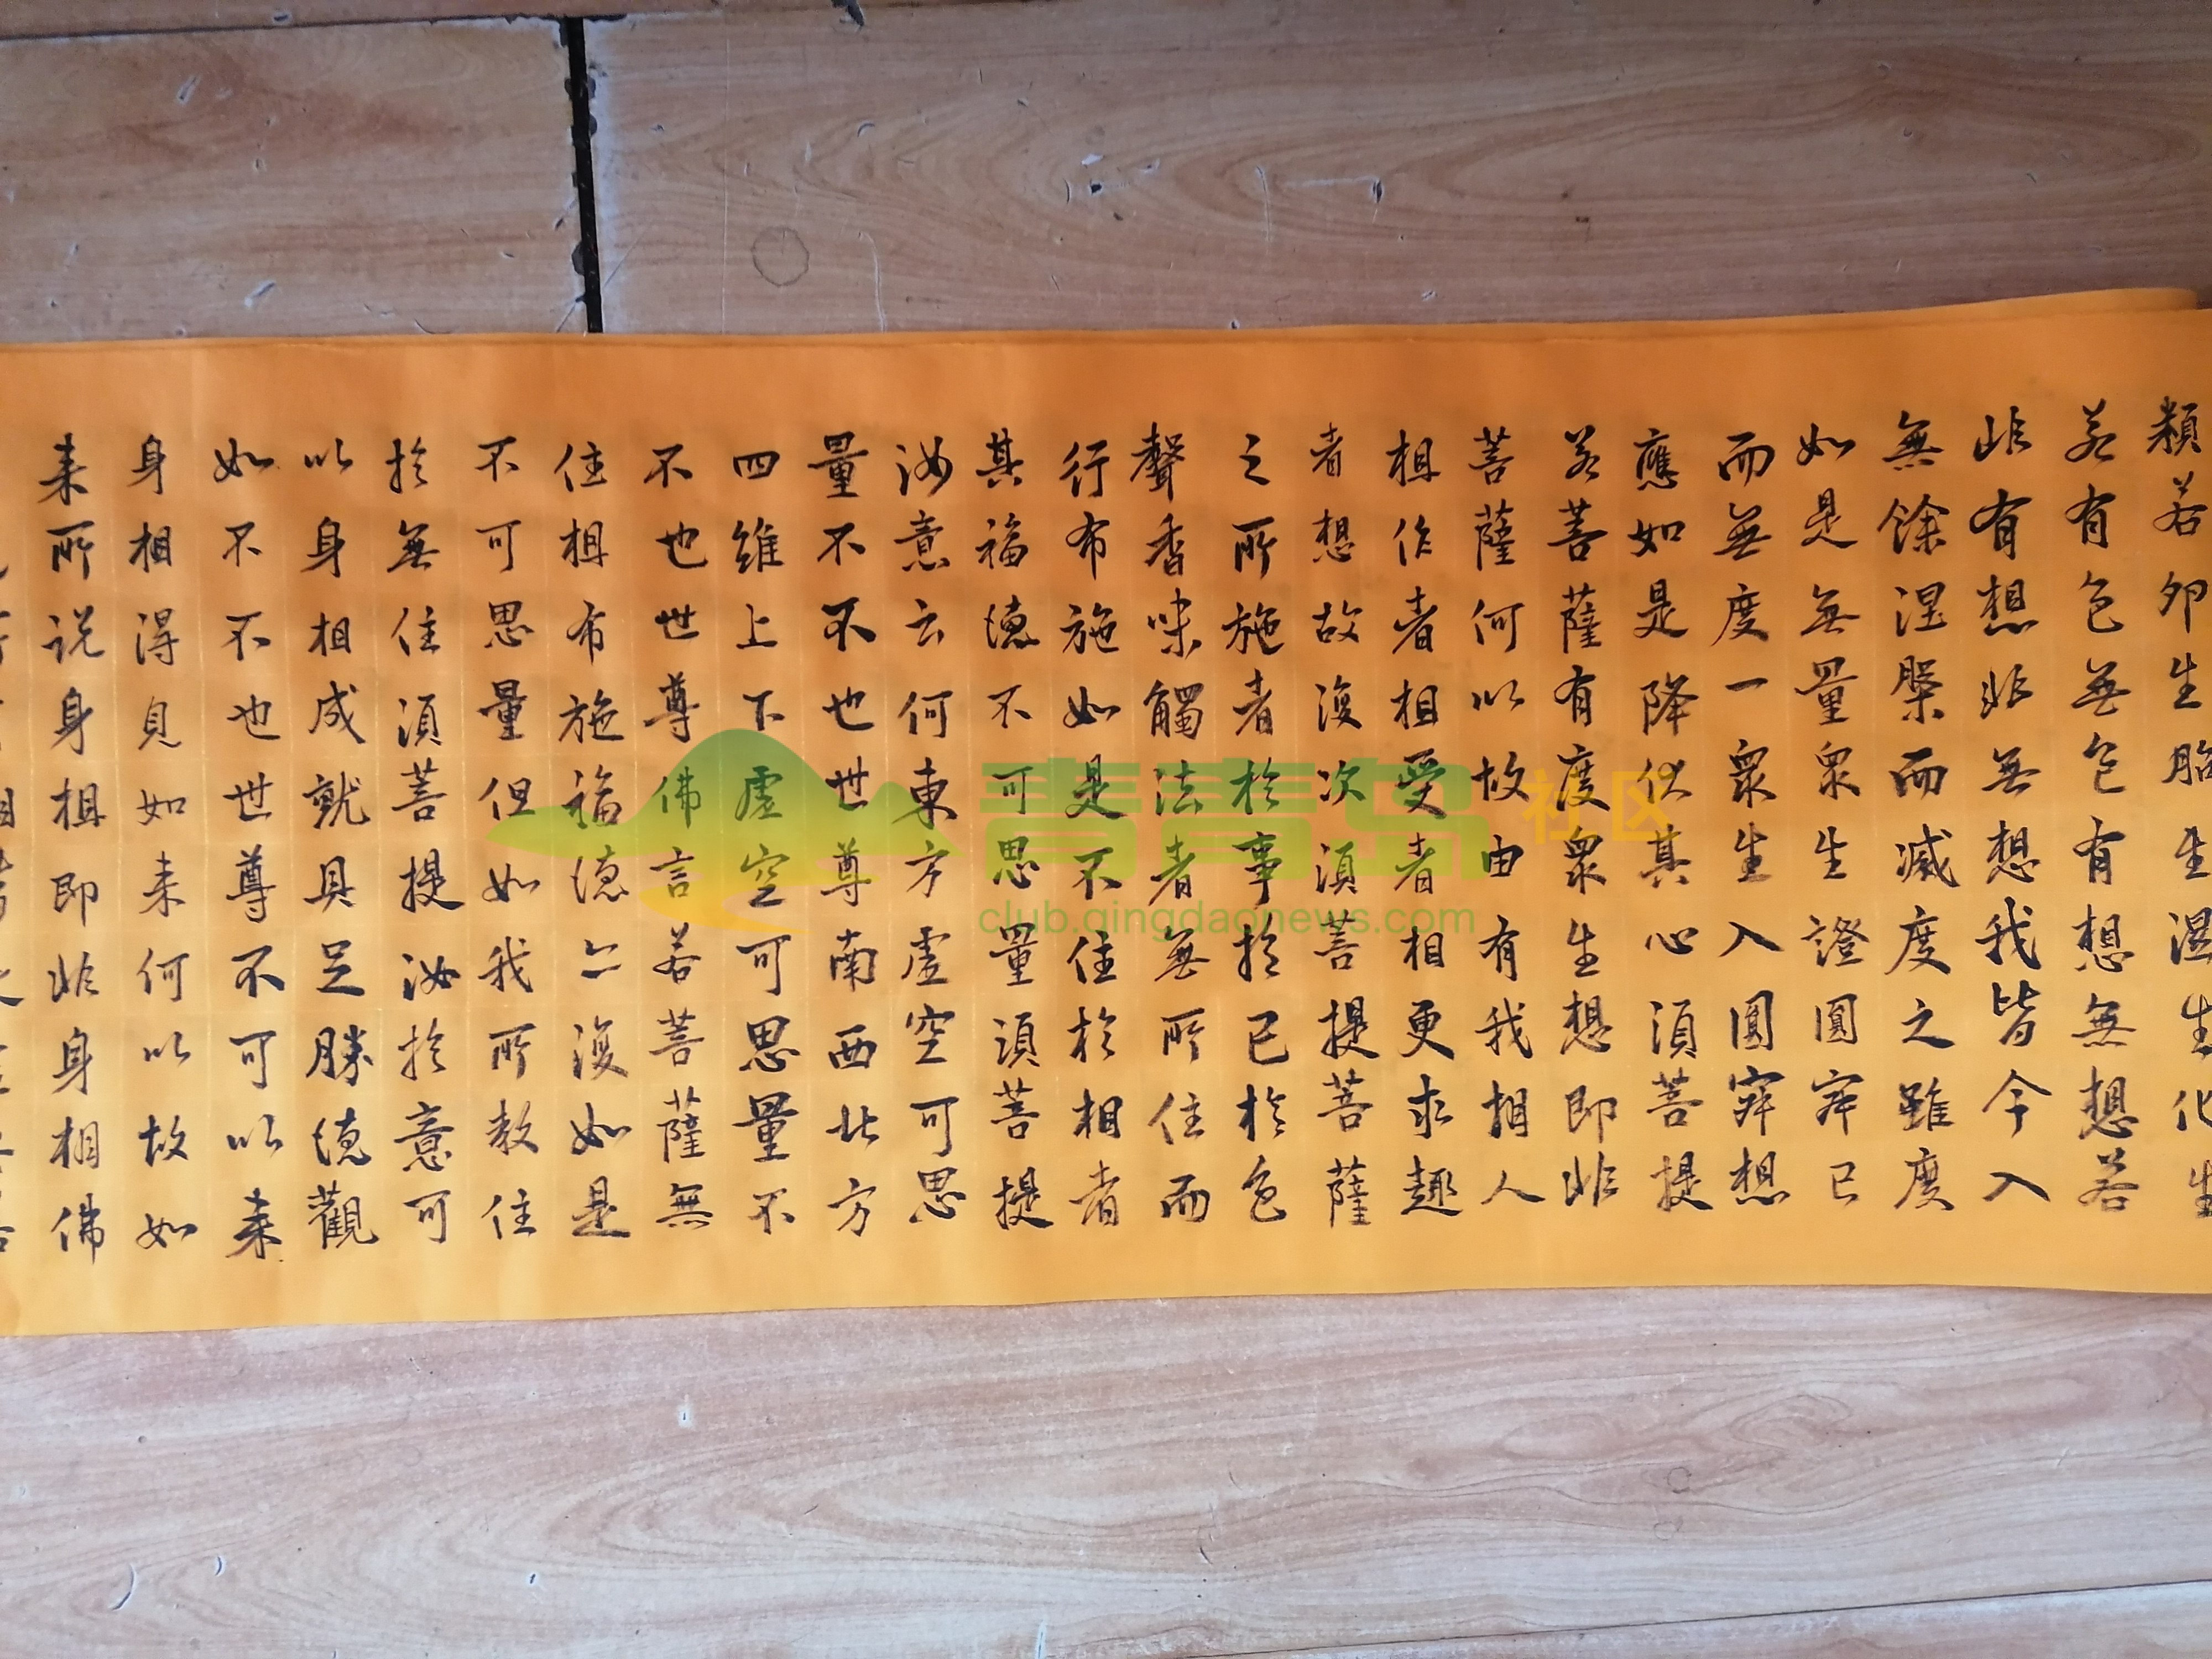 類若卵生胎生濕生化生
若有色無色有想無想若
非有想非無想我皆令入
無餘涅槃而滅度之雖度
如是無量眾生證圓寂已
而無度一眾生入圓寂想
應如是降伏其心須菩提
若菩薩有度眾生想即非
菩薩何以故由有我相人
相作者相受者相更求趣
者想故復次須菩提菩薩
之所施者於事於已於色
聲香味觸法者無所住而
行布施如是不住於相者
其福德不可思量須菩提
汝意云何東方虛空可思
量不不也世尊南西北方
四維上下虛空可思量不
不也世尊佛言若菩薩無
住相布施福德亦復如是
不可思量但如我所教住
於無住須菩提汝於意可
以身相成就具足勝德觀
如不不也世尊不可以来
身相得見如来何以故如
来所说身相即非身相佛
青青岛社区
club.qingdaonews.com